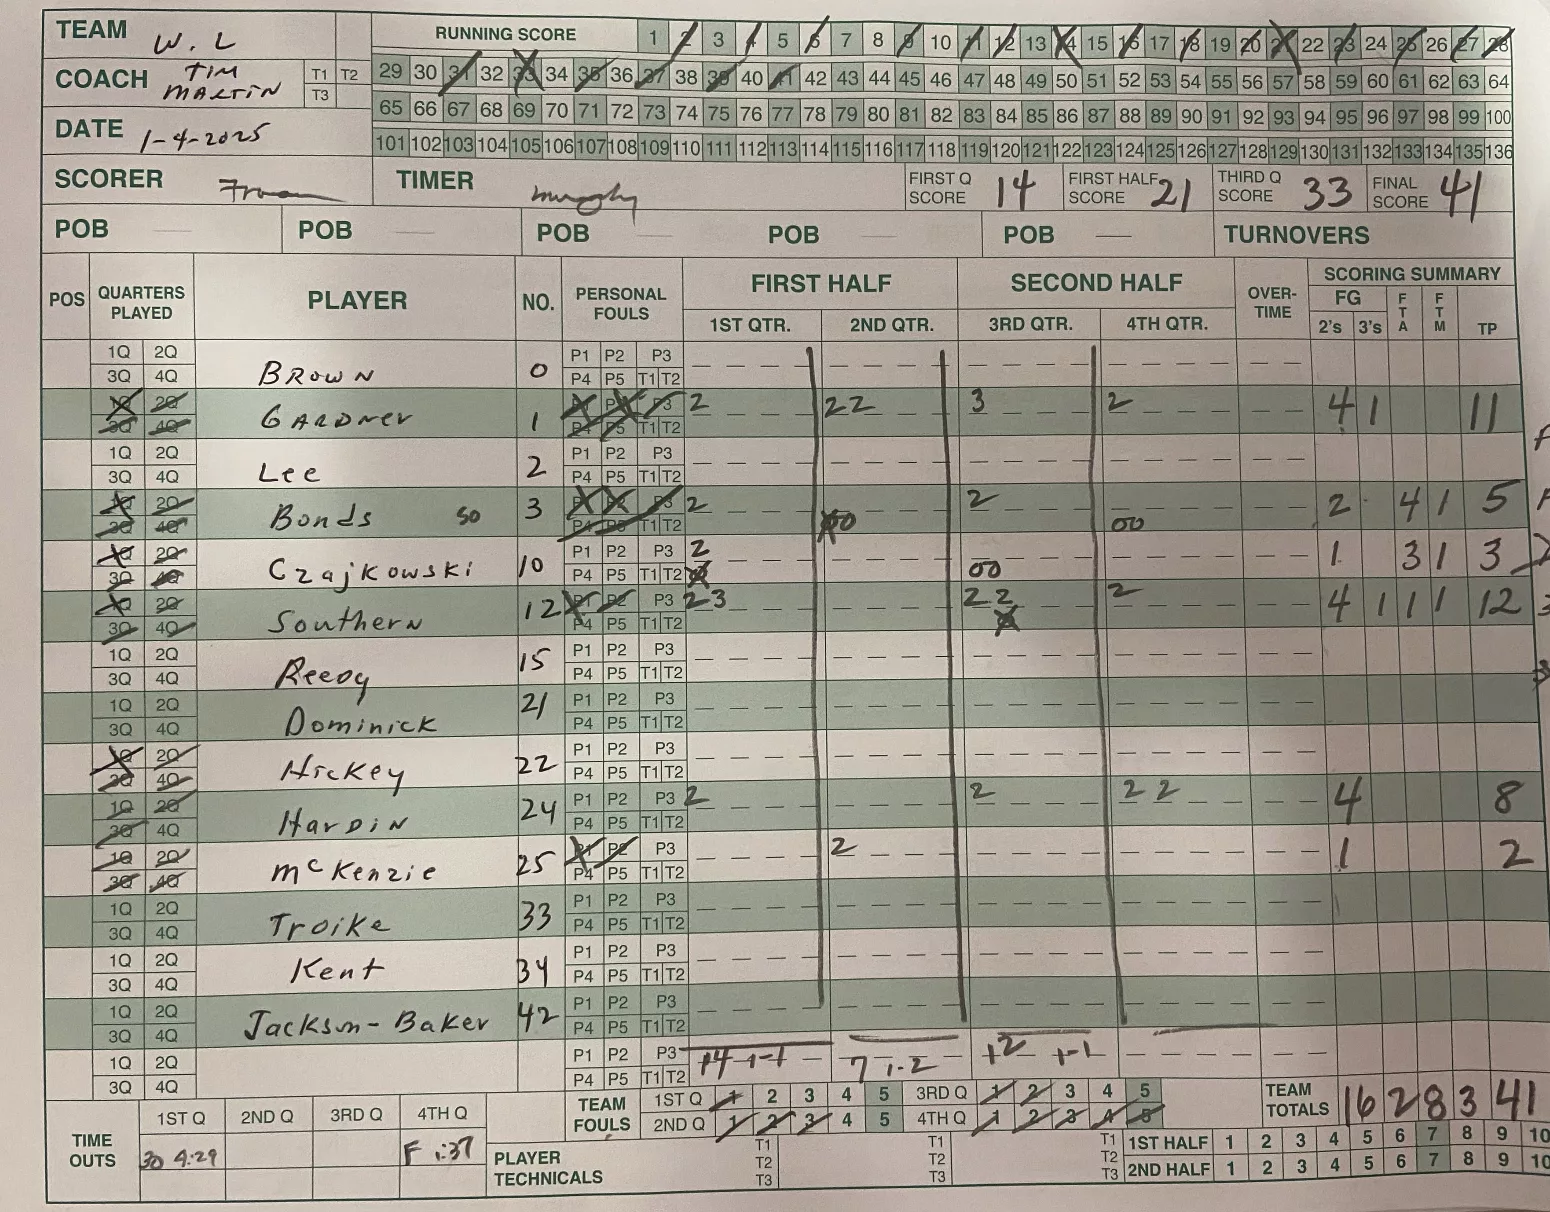 TEAM W. L
RUNNING SCORE 1 2 3 4 5 6 7 8 9 10 11 12 13 14 15 16 17 18 19 20 21 22 23 24 25 26 27 28
COACH TIM MARTIN T1 T2 T3
29 30 31 32 33 34 35 36 37 38 39 40 41 42 43 44 45 46 47 48 49 50 51 52 53 54 55 56 57 58 59 60 61 62 63 64
65 66 67 68 69 70 71 72 73 74 75 76 77 78 79 80 81 82 83 84 85 86 87 88 89 90 91 92 93 94 95 96 97 98 99 100
DATE 1-4-2025
101 102 103 104 105 106 107 108 109 110 111 112 113 114 115 116 117 118 119 120 121 122 123 124 125 126 127 128 129 130 131 132 133 134 135 136
SCORER TIMER murphy FIRST Q SCORE 14 FIRST HALF SCORE 21 THIRD Q SCORE 33 FINAL SCORE 41
POB POB POB POB POB TURNOVERS
POS QUARTERS PLAYED PLAYER NO. PERSONAL FOULS FIRST HALF SECOND HALF OVER-TIME SCORING SUMMARY
1ST QTR. 2ND QTR. 3RD QTR. 4TH QTR. FG 2's 3's FTA FTM TP
1Q 2Q 3Q 4Q BROWN 0 P1 P2 P3 P4 P5 T1 T2
1Q 2Q 3Q 4Q GARDNER 1 P1 P2 P3 P4 P5 T1 T2 2 22 3 2 4 1 11
1Q 2Q 3Q 4Q Lee 2 P1 P2 P3 P4 P5 T1 T2
1Q 2Q 3Q 4Q Bonds so 3 P1 P2 P3 P4 P5 T1 T2 2 00 2 00 2 4 1 5
1Q 2Q 3Q 4Q Czajkowski 10 P1 P2 P3 P4 P5 T1 T2 2 00 1 3 1 3
1Q 2Q 3Q 4Q Southern 12 P1 P2 P3 P4 P5 T1 T2 23 22 2 4 1 1 1 12
1Q 2Q 3Q 4Q Reedy 15 P1 P2 P3 P4 P5 T1 T2
1Q 2Q 3Q 4Q Dominick 21 P1 P2 P3 P4 P5 T1 T2
1Q 2Q 3Q 4Q Hickey 22 P1 P2 P3 P4 P5 T1 T2
1Q 2Q 3Q 4Q HarDiN 24 P1 P2 P3 P4 P5 T1 T2 2 2 2 2 4 8
1Q 2Q 3Q 4Q McKenzie 25 P1 P2 P3 P4 P5 T1 T2 2 1 2
1Q 2Q 3Q 4Q Troike 33 P1 P2 P3 P4 P5 T1 T2
1Q 2Q 3Q 4Q Kent 34 P1 P2 P3 P4 P5 T1 T2
1Q 2Q 3Q 4Q Jackson-Baker 42 P1 P2 P3 P4 P5 T1 T2
1Q 2Q 3Q 4Q P1 P2 P3 P4 P5 T1 T2 14 1-1 7 1-2 12 1-1
TIME OUTS 1ST Q 2ND Q 3RD Q 4TH Q TEAM FOULS 1ST Q 1 2 3 4 5 3RD Q 1 2 3 4 5 TEAM TOTALS 16 2 8 3 41
2ND Q 1 2 3 4 5 4TH Q 1 2 3 4 5
30 4:29 F 1:37 PLAYER TECHNICALS T1 T2 T3 T1 T2 T3 T1 T2 T3 1ST HALF 1 2 3 4 5 6 7 8 9 10
2ND HALF 1 2 3 4 5 6 7 8 9 10